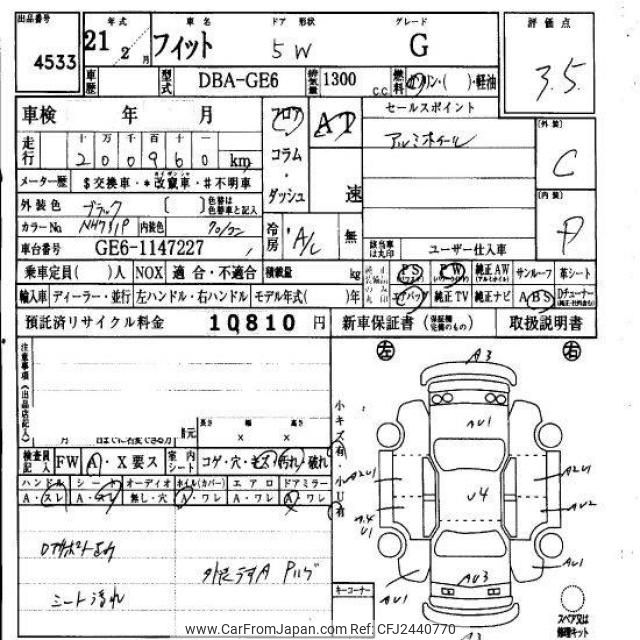 出品番号 年式 車名 ドア 形状 グレード 評価点
4533 21 2月 フィット 5 W G 3.5
車歴 型式 DBA-GE6 排気量 1300 c.c 燃料 ガソリン・( )・軽油
車検 年 月 フロア AT セールスポイント
アルミホイール [外装] C
走行 十 万 千 百 十 一
200960 km コラム・ダッシュ 速
メーター歴 $交換車・*改竄車・#不明車
外装色 ブラック [ ] 色替は色替車と記入 [内装]
カラーNo NH731P 内装色 冷房 A/C 無 該当車は丸印 ユーザー仕入車
車台番号 GE6-1147227
乗車定員( )人 NOX 適合・不適合 積載量 kg PS PW 純正AW サンルーフ 革シート
輸入車 ディーラー・並行 左ハンドル・右ハンドル モデル年式( )年 エアバッグ 純正TV 純正ナビ ABS Dチューナー
預託済リサイクル料金 10810 円 新車保証書 (保証欄完備のもの) 取扱説明書
左 右
注意事項(出品店記入)
A3
AU1
長さ 幅 高さ
x x
小キズ有・小U有
検査員記入 FW A・X要ス 室内シート コゲ・穴・キズ・汚れ・破れ
ハンドル シート オーディオ ホイル(カバー) エアロ ドアミラー
A・スレ A・スレ 無し・穴 A・ワレ A・ワレ A・ワレ
A2U1 A2U1
U4
AU2
AU1
シート汚れ
AU3
AU1 AU1
キーコーナー
スペア又は修理キット
www.CarFromJapan.com Ref: CFJ2440770